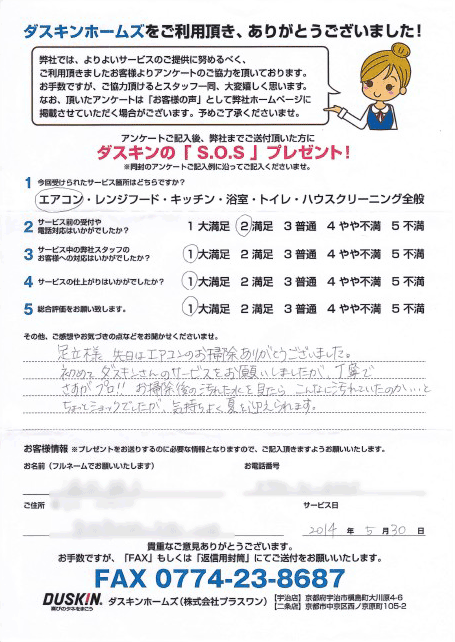 ダスキンホームズをご利用頂き、ありがとうございました!
弊社では、よりよいサービスのご提供に努めるべく、
ご利用頂きましたお客様よりアンケートのご協力を頂いております。
お手数ですが、ご協力頂けるとスタッフ一同、大変嬉しく思います。
なお、頂いたアンケートは「お客様の声」として弊社ホームページに
掲載させていただく場合がございます。予めご了承くださいませ。
アンケートご記入後、弊社までご送付頂いた方に
ダスキンの「S.O.S」プレゼント!
※同封のアンケートご記入例に沿ってご記入くださいませ。
1 今回受けられたサービス箇所はどちらですか?
エアコン・レンジフード・キッチン・浴室・トイレ・ハウスクリーニング全般
2 サービス前の受付や
電話対応はいかがでしたか?
1 大満足 2 満足 3 普通 4 やや不満 5 不満
3 サービス中の弊社スタッフの
お客様への対応はいかがでしたか?
1 大満足 2 満足 3 普通 4 やや不満 5 不満
4 サービスの仕上がりはいかがでしたか?
1 大満足 2 満足 3 普通 4 やや不満 5 不満
5 総合評価をお願い致します。
1 大満足 2 満足 3 普通 4 やや不満 5 不満
その他、ご感想やお気づきの点などをお聞かせくださいませ。
足立様 先日はエアコンのお掃除ありがとうございました。
初めてダスキンさんのサービスをお願いしましたが、丁寧で
さすがプロ!! お掃除後の汚れた水を見たら こんなに汚れていたのか…と
ちょっとショックでしたが、気持ちよく夏を迎えられます。
お客様情報 ※プレゼントをお送りするのに必要な情報となりますので、ご記入頂きますようお願いいたします。
お名前(フルネームでお願いいたします)
お電話番号
ご住所
サービス日
2014 年 5 月 30 日
貴重なご意見ありがとうございます。
お手数ですが、「FAX」もしくは「返信用封筒」にてご送付をお願いいたします。
FAX 0774-23-8687
DUSKIN
喜びのタネをまこう
ダスキンホームズ(株式会社プラスワン)
[宇治店] 京都府宇治市槇島町大川原4-6
[二条店] 京都市中京区西ノ京原町105-2